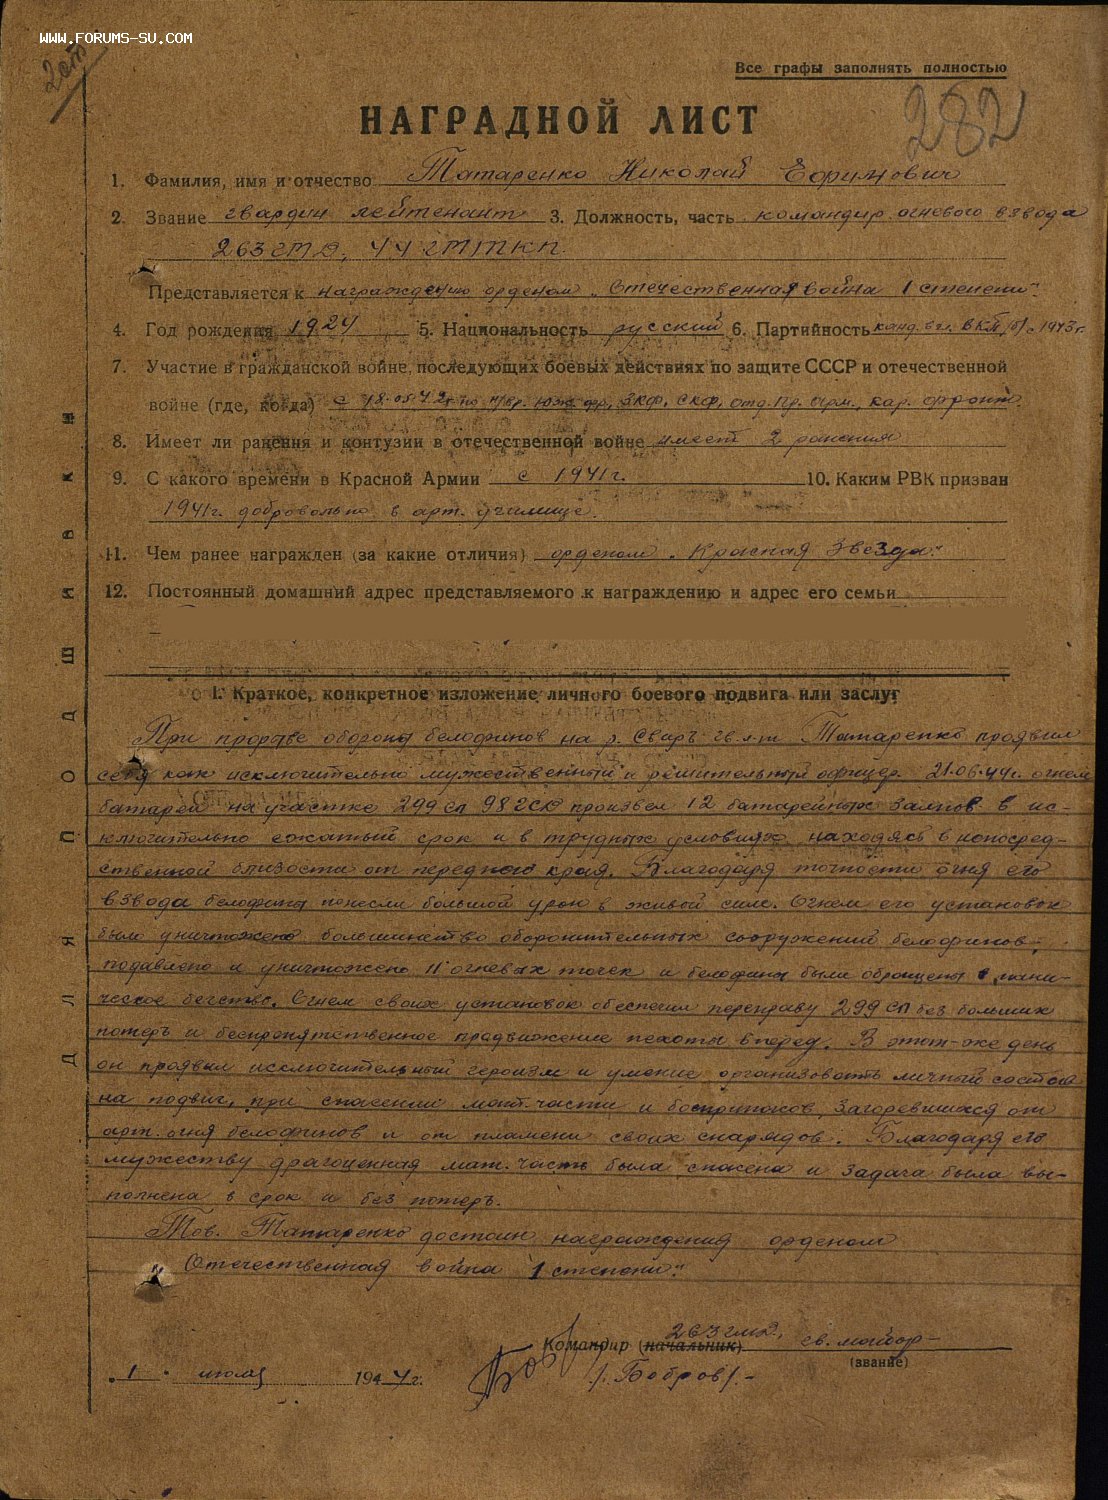 WWW.FORUMS-SU.COM
2 ст
Все графы заполнять полностью
282
НАГРАДНОЙ ЛИСТ
1. Фамилия, имя и отчество Татаренко Николай Ефимович
2. Звание гвардии лейтенант 3. Должность, часть командир огневого взвода
263 гмд, 44 гмп
Представляется к награждению орденом „Отечественная война 1 степени"
4. Год рождения 1924 5. Национальность русский 6. Партийность канд. вч. ВКП(б) с 1943г.
7. Участие в гражданской войне, последующих боевых действиях по защите СССР и отечественной
войне (где, когда) с 18.05.42г. по Юж. фр., ЗКФ, СКФ, отд. Пр. арм., Кар. фронт.
8. Имеет ли ранения и контузии в отечественной войне имеет 2 ранения
9. С какого времени в Красной Армии с 1941г. 10. Каким РВК призван
1941г. добровольно в арт. училище.
11. Чем ранее награжден (за какие отличия) орденом „Красная Звезда"
12. Постоянный домашний адрес представляемого к награждению и адрес его семьи
I. Краткое, конкретное изложение личного боевого подвига или заслуг
При прорыве обороны белофинов на р. Свирь гв. л-т Татаренко проявил
себя как исключительно мужественный и решительный офицер. 21.06.44г. огнем
батареи на участке 299 сп 98 гсд произвел 12 батарейных залпов в ис-
ключительно сжатый срок и в трудных условиях, находясь в непосред-
ственной близости от переднего края. Благодаря точности огня его
взвода белофины понесли большой урон в живой силе. Огнем его установок
было уничтожено большинство оборонительных сооружений белофинов,
подавлено и уничтожено 11 огневых точек и белофины были обращены в пани-
ческое бегство. Огнем своих установок обеспечил переправу 299 сп без больших
потерь и беспрепятственное продвижение пехоты вперед. В этот-же день
он проявил исключительный героизм и умение организовать личный состав
на подвиг, при спасении мат. части и боеприпасов, загоревшихся от
арт. огня белофинов и от пламени своих снарядов. Благодаря его
мужеству драгоценная мат. часть была спасена и задача была вы-
полнена в срок и без потерь.
Тов. Татаренко достоин награждения орденом
„Отечественная война 1 степени".
Командир (начальник) 263 гмд, гв. майор
(звание)
/Бобров/
1 июля 1944г.
ДЛЯ ПОДШИВКИ